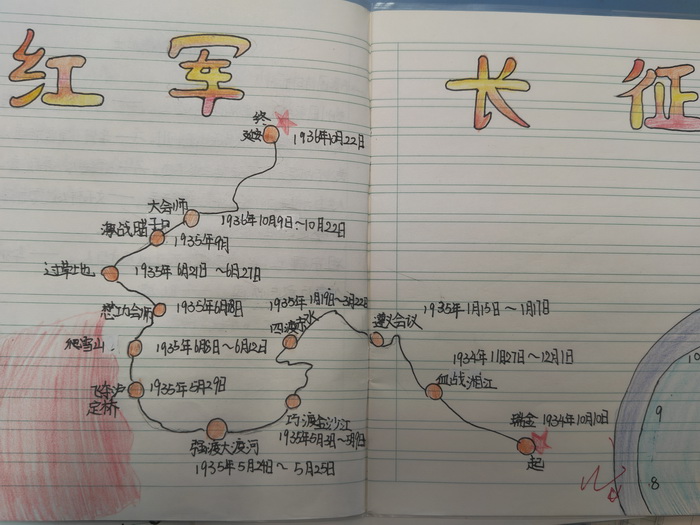 红军 长征
终
延安
1936年10月22日
大会师
1936年10月9日~10月22日
激战腊子口
1935年9月
过草地
1935年6月21日~6月27日
懋功会师
1935年6月8日
爬雪山
1935年6月8日~6月12日
飞夺泸
定桥
1935年5月29日
强渡大渡河
1935年5月24日~5月25日
巧渡金沙江
1935年5月3日~5月9日
四渡赤水
1935年1月19日~3月22日
遵义会议
1935年1月15日~1月17日
血战湘江
1934年11月27日~12月1日
瑞金 1934年10月10日
起
10
9
8